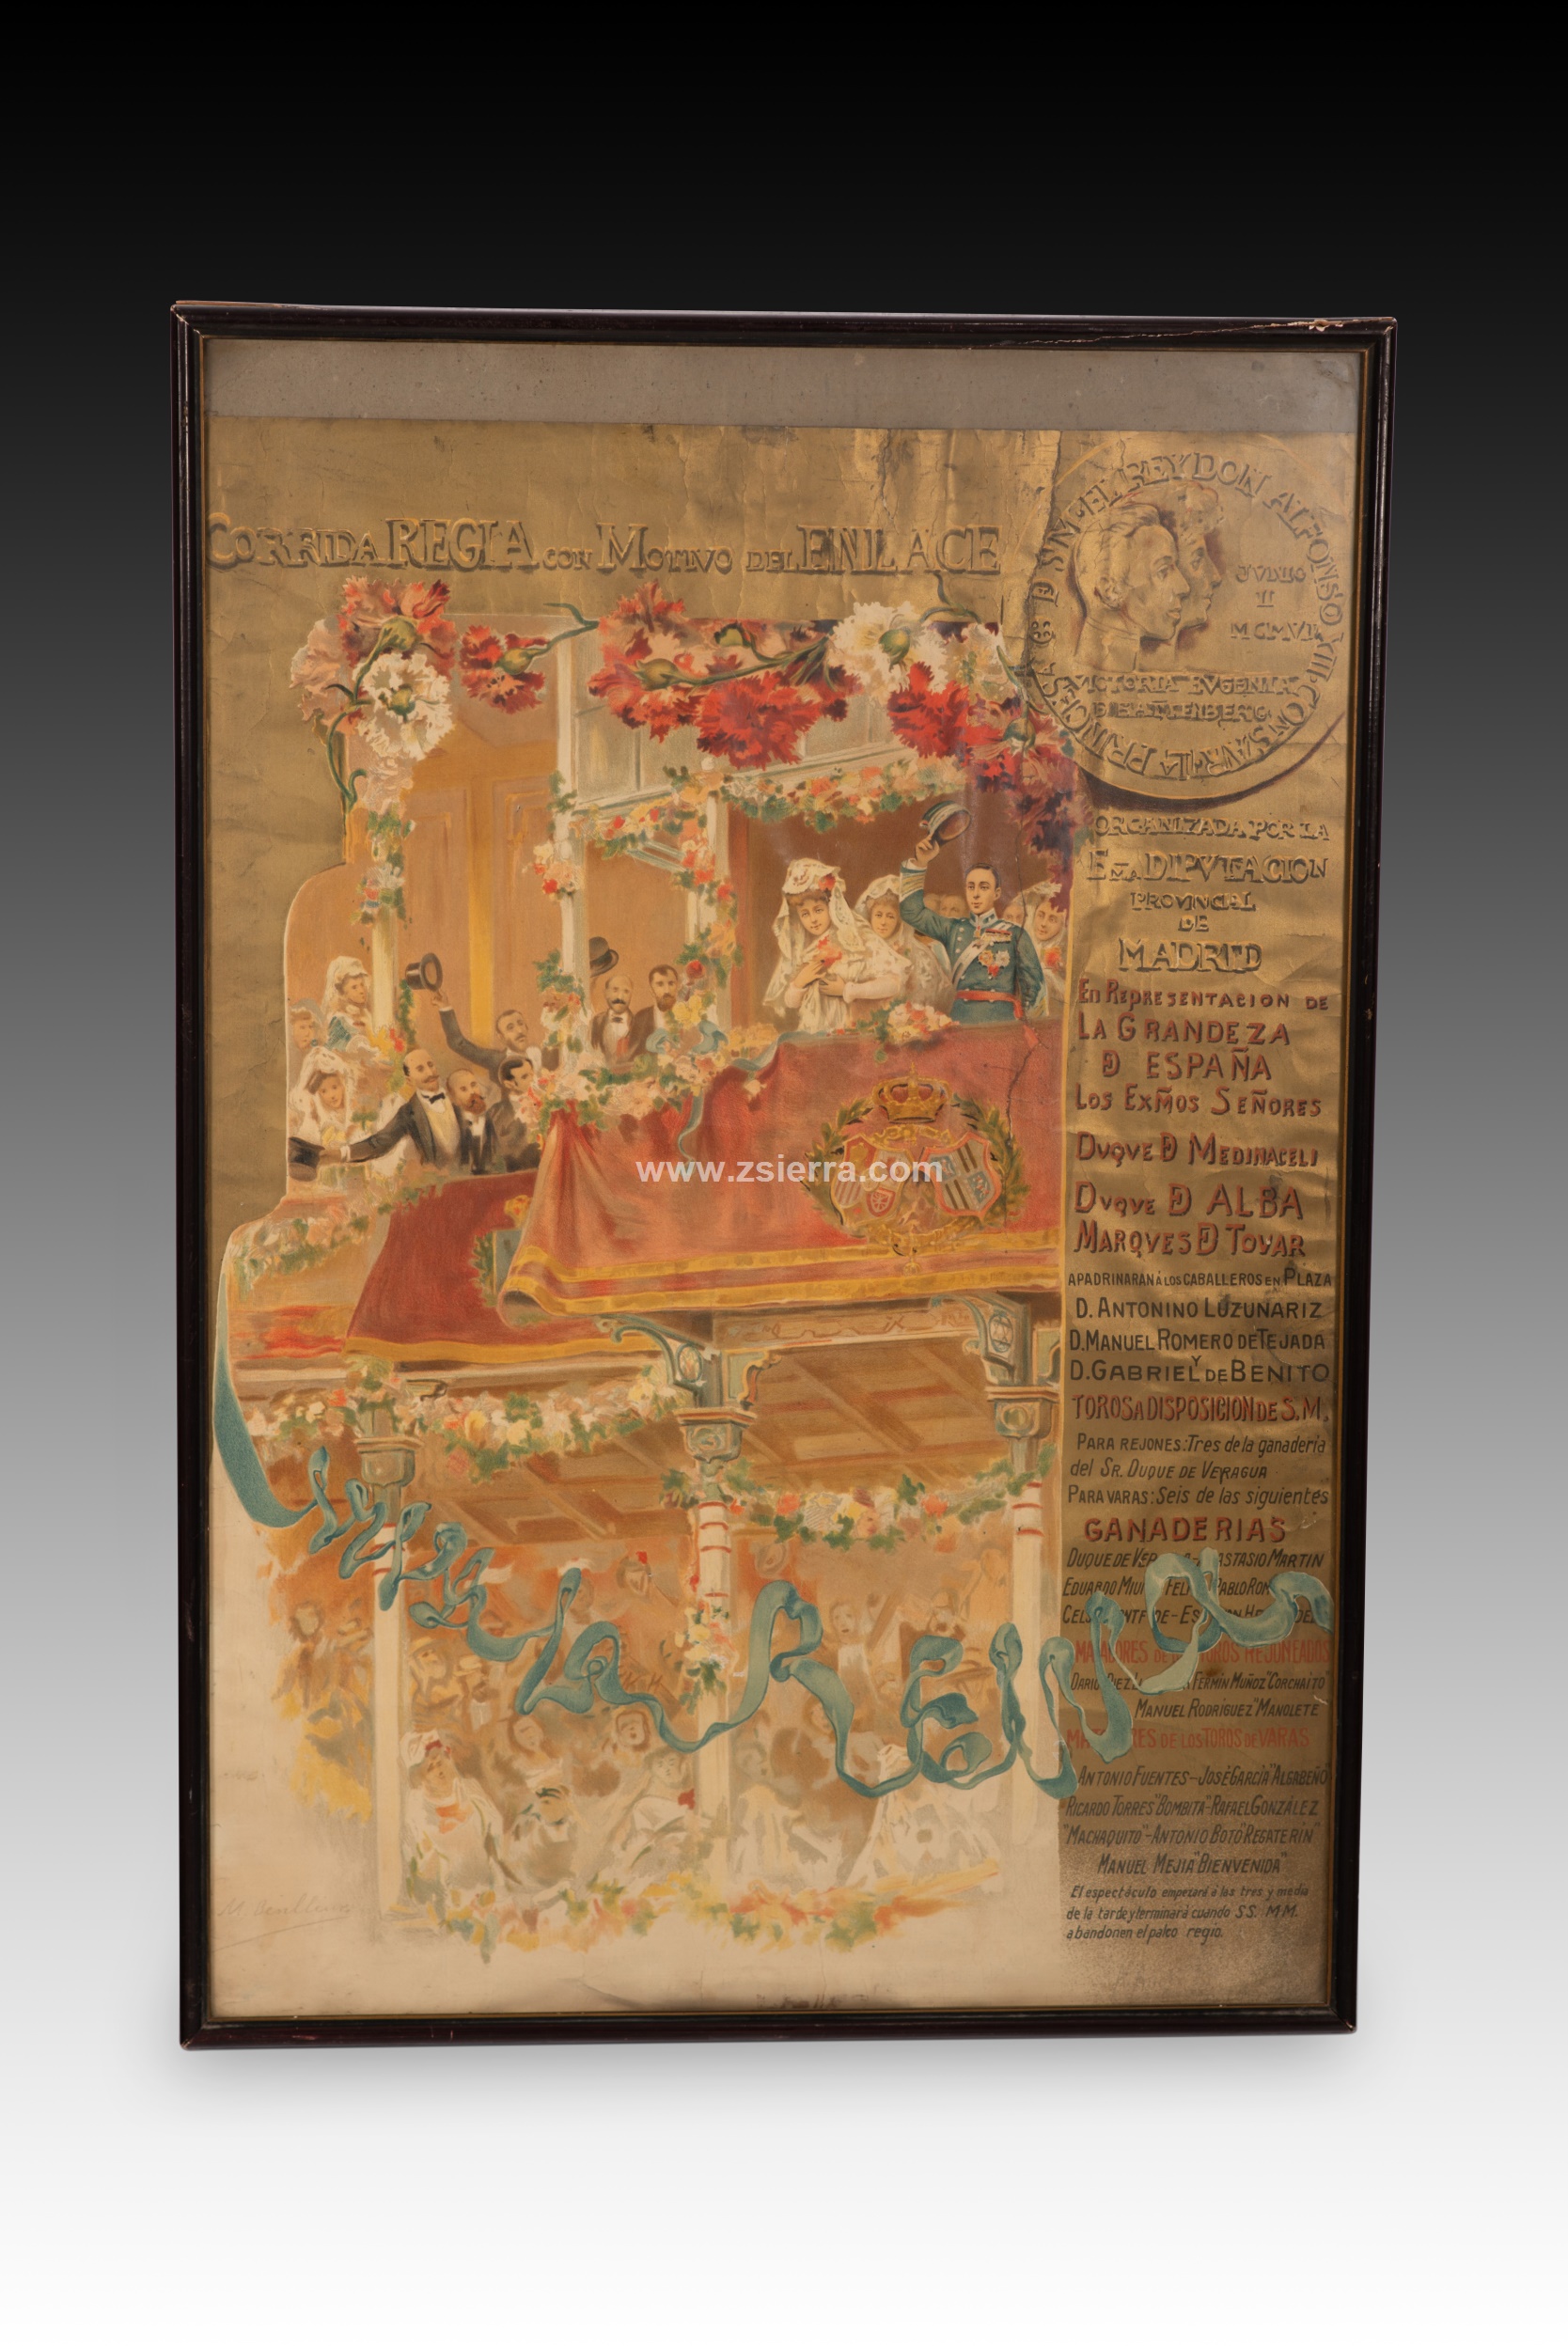 CORRIDA REGIA CON MOTIVO DEL ENLACE
DE S.M. EL REY DON ALFONSO XIII CON S.A.R. LA PRINCESA
JVNIO
II
MCMVI
VICTORIA EVGENIA
DE BATTENBERG
ORGANIZADA POR LA
EMA DIPVTACION
PROVINCIAL
DE
MADRID
En REPRESENTACION DE
LA GRANDEZA
D ESPAÑA
LOS EXMOS SEÑORES
DUQUE D MEDINACELI
DVQVE D ALBA
MARQVES D TOVAR
APADRINARAN Á LOS CABALLEROS EN PLAZA
D. ANTONINO LUZUNARIZ
D. MANUEL ROMERO DE TEJADA
Y
D. GABRIEL DE BENITO
TOROS A DISPOSICION DE S.M.
PARA REJONES: Tres de la ganaderia
del SR. DUQUE DE VERAGUA
PARA VARAS: Seis de las siguientes
GANADERIAS
DUQUE DE VER ASTASIO MARTIN
EDUARDO MIU FEL PABLO ROM
MATADORES DE TOROS REJONEADOS
FERMIN MUÑOZ "CORCHAITO"
MANUEL RODRIGUEZ "MANOLETE"
MATADORES DE LOS TOROS DE VARAS
ANTONIO FUENTES - JOSÉ GARCIA "ALGABEÑO"
RICARDO TORRES "BOMBITA" - RAFAEL GONZÁLEZ
"MACHAQUITO" - ANTONIO BOTO "REGATERIN"
MANUEL MEJIA "BIENVENIDA"
El espectáculo empezará á las tres y media
de la tarde y terminará cuando SS. MM.
abandonen el palco regio.
Viva la REina
www.zsierra.com
M. Benlliure